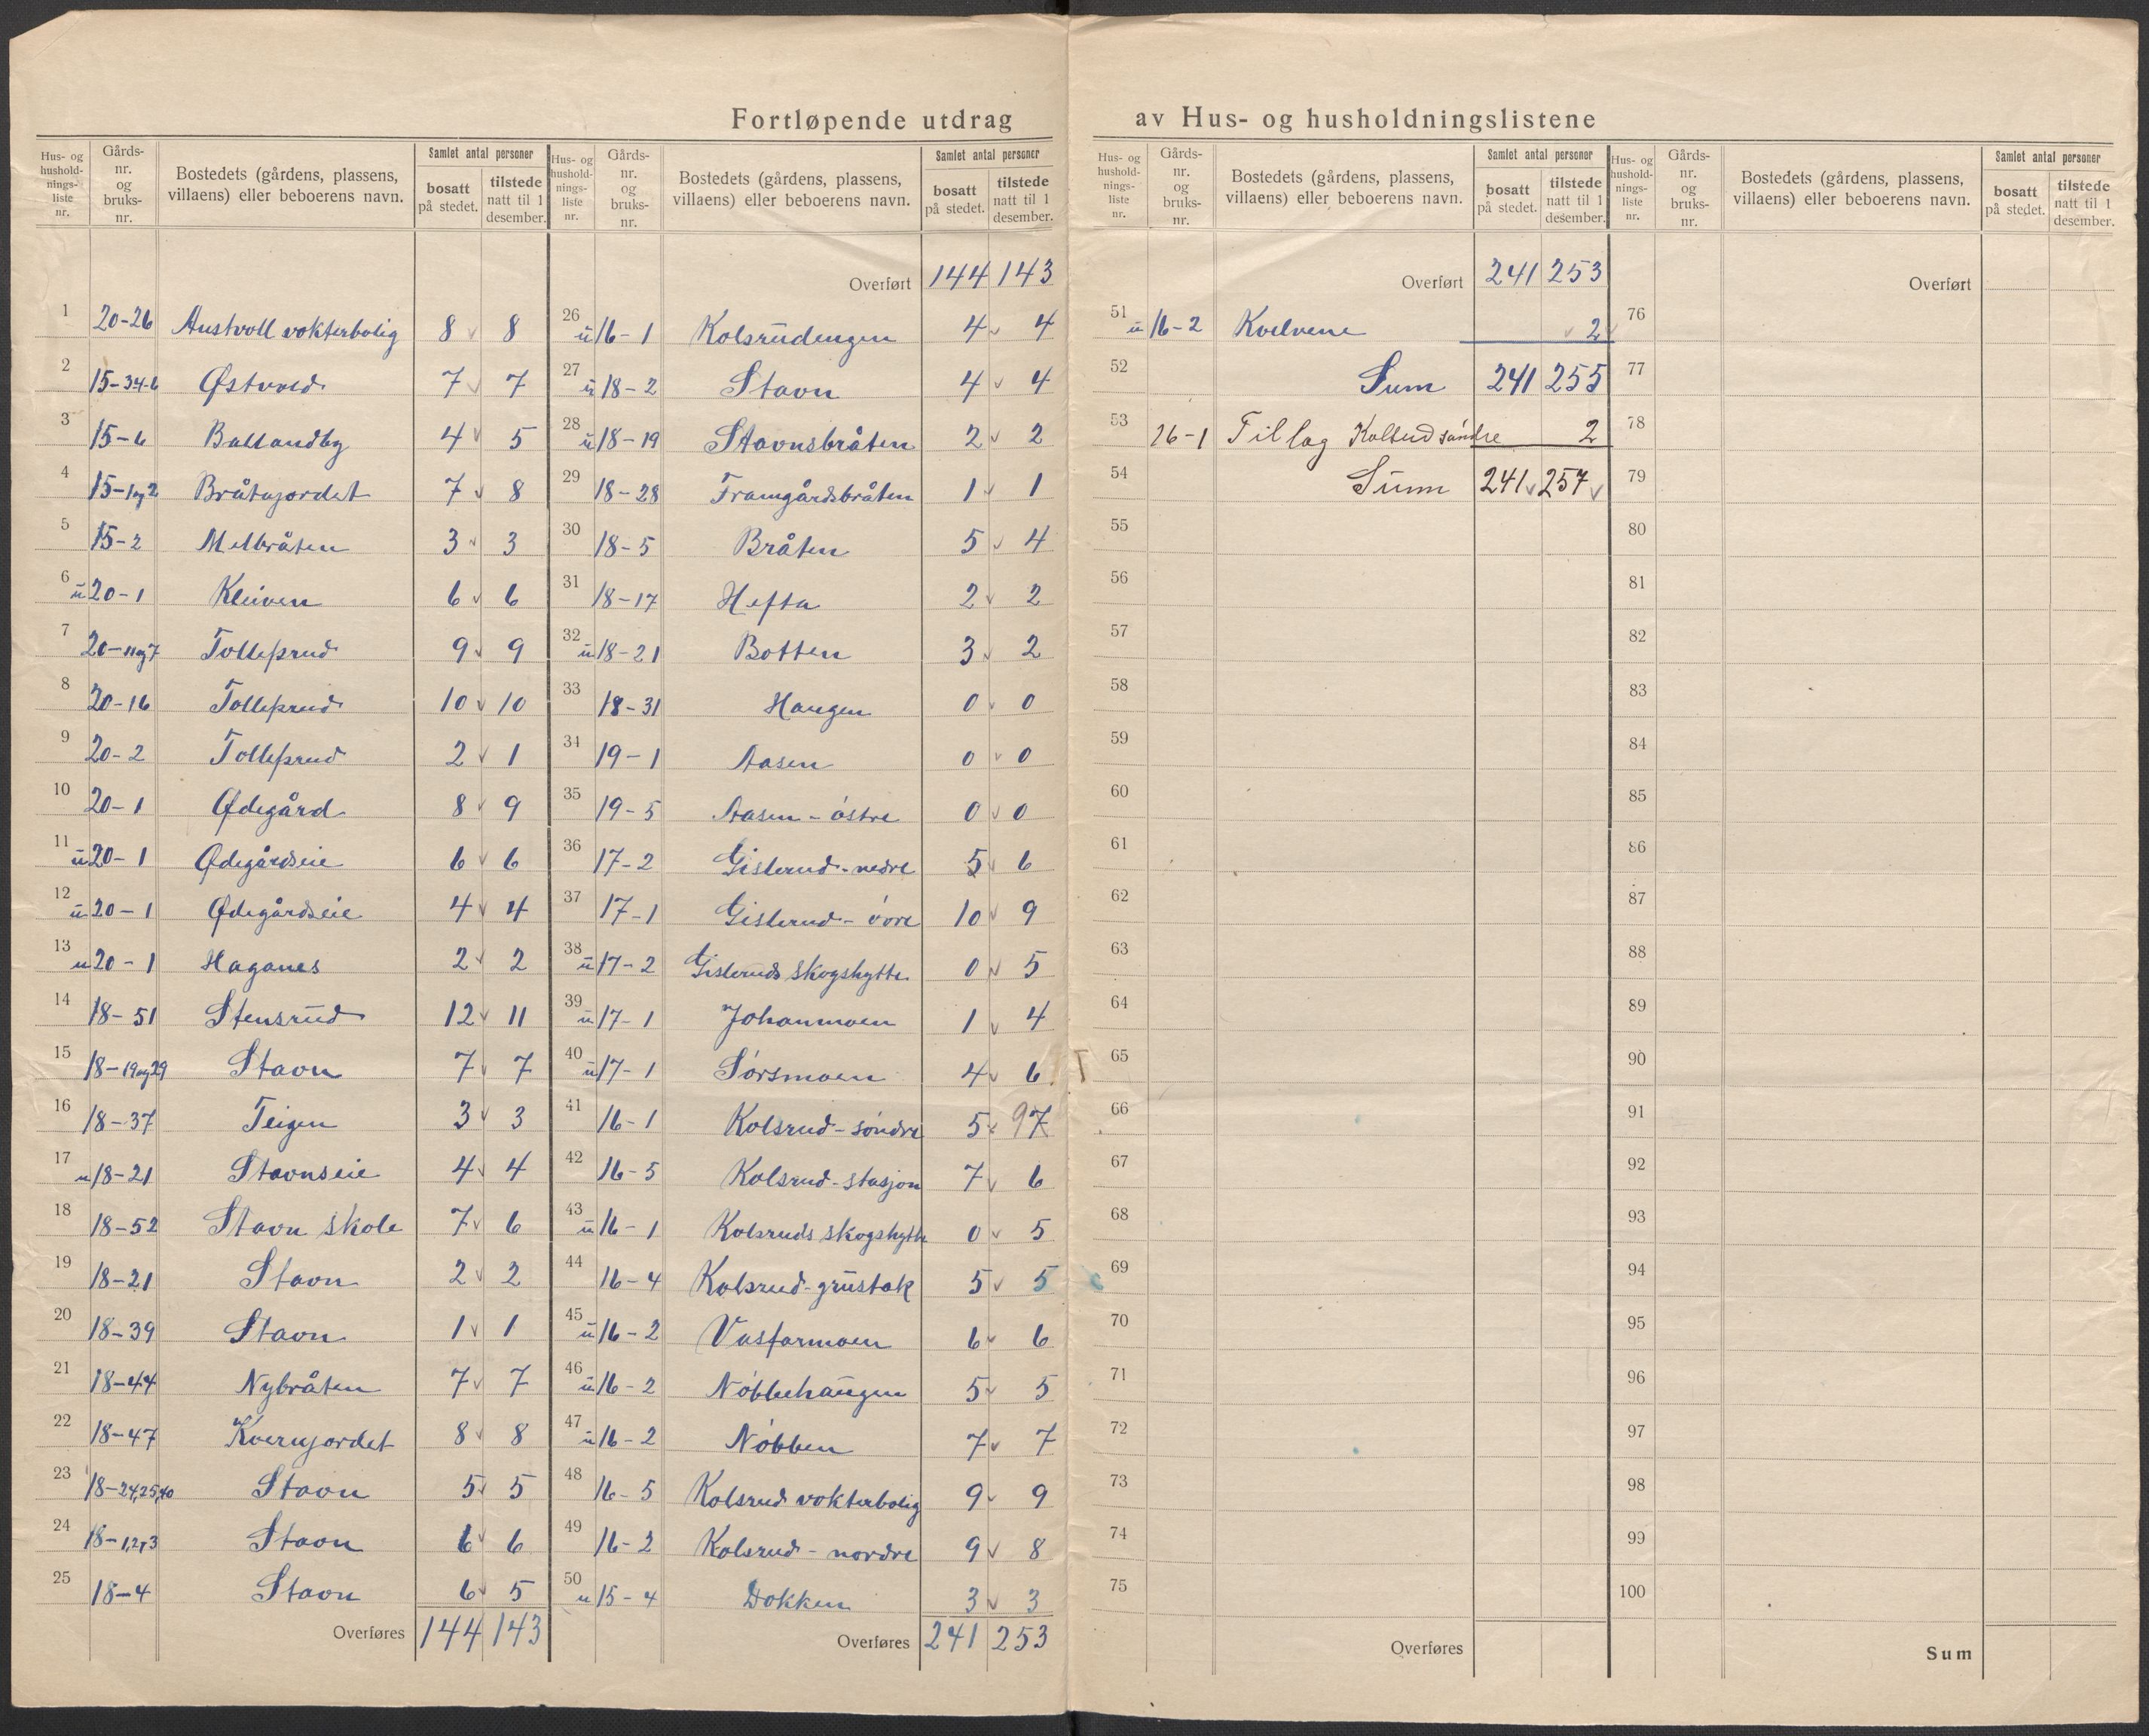 Fortløpende utdrag av Hus- og husholdningslistene
Hus- og hushold-nings-liste nr. Gårds-nr. og bruks-nr. Bostedets (gårdens, plassens, villaens) eller beboerens navn. Samlet antal personer bosatt på stedet. tilstede natt til 1 desember.
1 20-26 Austvoll vokterbolig 8 8
2 15-34-6 Østvold 7 7
3 15-6 Ballandby 4 5
4 15-1og2 Bråtajordet 7 8
5 15-2 Melbråten 3 3
6 u 20-1 Kleiven 6 6
7 20-11og7 Tollefsrud 9 9
8 20-16 Tollefsrud 10 10
9 20-2 Tollefsrud 2 1
10 20-1 Ødegård 8 9
11 u 20-1 Ødegårdseie 6 6
12 u 20-1 Ødegårdseie 4 4
13 u 20-1 Haganes 2 2
14 18-51 Stensrud 12 11
15 18-19og29 Stavn 7 7
16 18-37 Teigen 3 3
17 u 18-21 Stavnseie 4 4
18 18-52 Stavn skole 7 6
19 18-21 Stavn 2 2
20 18-39 Stavn 1 1
21 18-44 Nybråten 7 7
22 18-47 Kvernjordet 8 8
23 18-24,25,40 Stavn 5 5
24 18-1,2,3 Stavn 6 6
25 18-4 Stavn 6 5
Overføres 144 143
Hus- og hushold-nings-liste nr. Gårds-nr. og bruks-nr. Bostedets (gårdens, plassens, villaens) eller beboerens navn. Samlet antal personer bosatt på stedet. tilstede natt til 1 desember.
Overført 144 143
26 u 16-1 Kolsrudengen 4 4
27 u 18-2 Stavn 4 4
28 u 18-19 Stavnsbråten 2 2
29 18-28 Framgårdsbråten 1 1
30 18-5 Bråten 5 4
31 18-17 Hefta 2 2
32 u 18-21 Botten 3 2
33 18-31 Haugen 0 0
34 19-1 Aasen 0 0
35 19-5 Aasen - østre 0 0
36 17-2 Gislerud - nedre 5 6
37 17-1 Gislerud - øvre 10 9
38 u 17-2 Gisleruds skogshytte 0 5
39 u 17-1 Johanmoen 1 4
40 u 17-1 Sørsmoen 4 6
41 16-1 Kolsrud - søndre 5 97
42 16-5 Kolsrud - stasjon 7 6
43 u 16-1 Kolsruds skogshytte 0 5
44 16-4 Kolsrud - grustak 5 5
45 u 16-2 Vasfarmoen 6 6
46 u 16-2 Nøbbehaugen 5 5
47 u 16-2 Nøbben 7 7
48 16-5 Kolsrud vokterbolig 9 9
49 16-2 Kolsrud - nordre 9 8
50 u 15-4 Dokken 3 3
Overføres 241 253
Hus- og hushold-nings-liste nr. Gårds-nr. og bruks-nr. Bostedets (gårdens, plassens, villaens) eller beboerens navn. Samlet antal personer bosatt på stedet. tilstede natt til 1 desember.
Overført 241 253
51 u 16-2 Kvelvene 2
52 Sum 241 255
53 16-1 Tillag Kolsrud søndre 2
54 Sum 241 257
55
56
57
58
59
60
61
62
63
64
65
66
67
68
69
70
71
72
73
74
75
Overføres
Hus- og hushold-nings-liste nr. Gårds-nr. og bruks-nr. Bostedets (gårdens, plassens, villaens) eller beboerens navn. Samlet antal personer bosatt på stedet. tilstede natt til 1 desember.
Overført
76
77
78
79
80
81
82
83
84
85
86
87
88
89
90
91
92
93
94
95
96
97
98
99
100
Sum